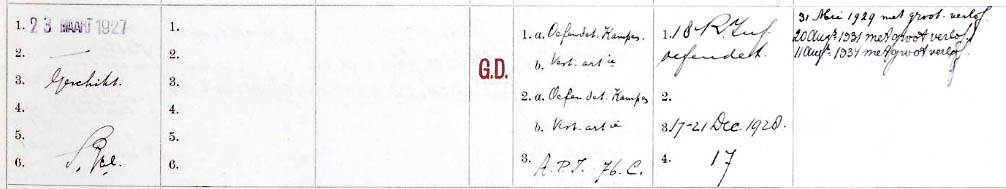 1. 23 MAART 1927
2. —
3. Geschikt.
4.
5.
6.
1.
2.
3.
4.
5.
6.
G.D.
1. a. Oefendet. Kampen
b. Vest. artie
2. a. Oefen det. Kampen
b. Vest. artie
3. A.P.T. 76. C.
1. 18 R. Inf.
oefendet.
2.
3. 17-21 Dec. 1928.
4. 17
31 Mei 1929 met groot verlof.
20 Augs. 1931 met groot verlof.
11 Augs. 1934 met groot verlof.